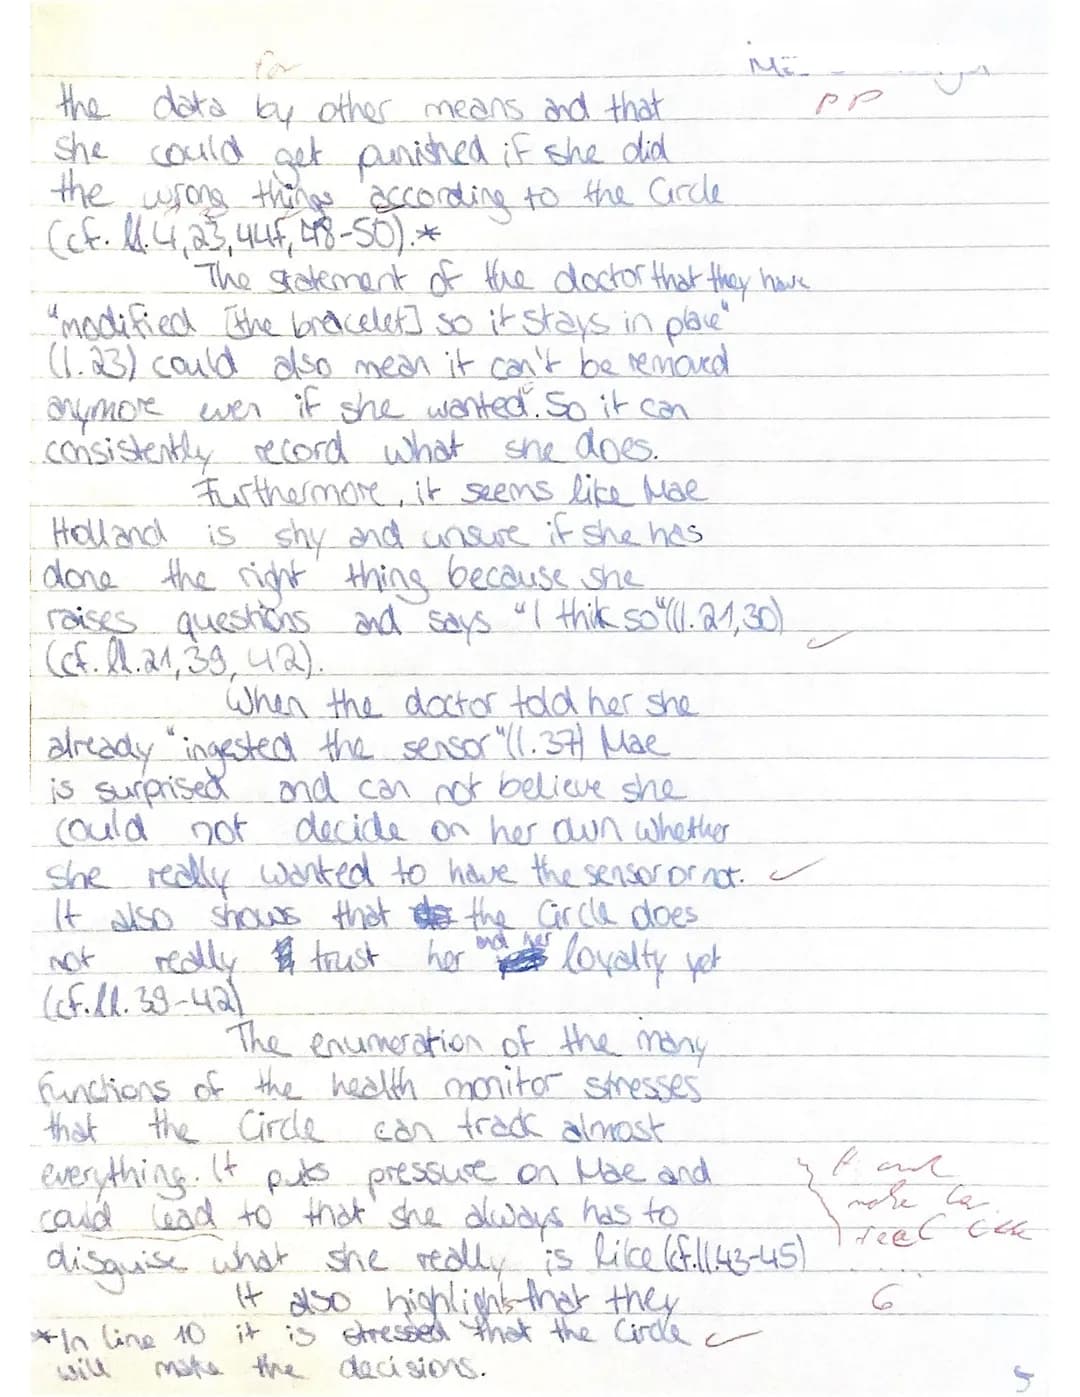 for
PP
the data by other means and that
she could get punished if she did
the wrong things according to the Circle
(cf. ll. 4, 23, 44f, 48-50).*
The statement of the doctor that they have
"modified [the bracelet] so it stays in place"
(l. 23) could also mean it can't be removed
anymore even if she wanted. So it can
consistently record what she does.
Furthermore, it seems like Mae
Holland is shy and unsure if she has
done the right thing because she
raises questions and says "I thik so" (ll. 21, 30)
(cf. ll. 21, 39, 42).
When the doctor told her she
already "ingested the sensor" (l. 37) Mae
is surprised and can not believe she
could not decide on her own whether
she really wanted to have the sensor or not.
It also shows that the Circle does
not really trust her and her loyalty yet
(cf. ll. 39-42)
The enumeration of the many
functions of the health monitor stresses
that the Circle can track almost
everything. It puts pressure on Mae and
could lead to that she always has to
disguise what she really is like (cf. ll. 43-45)
It also highlights that they
6
*In line 10 it is stressed that the Circle
will make the decisions.
5